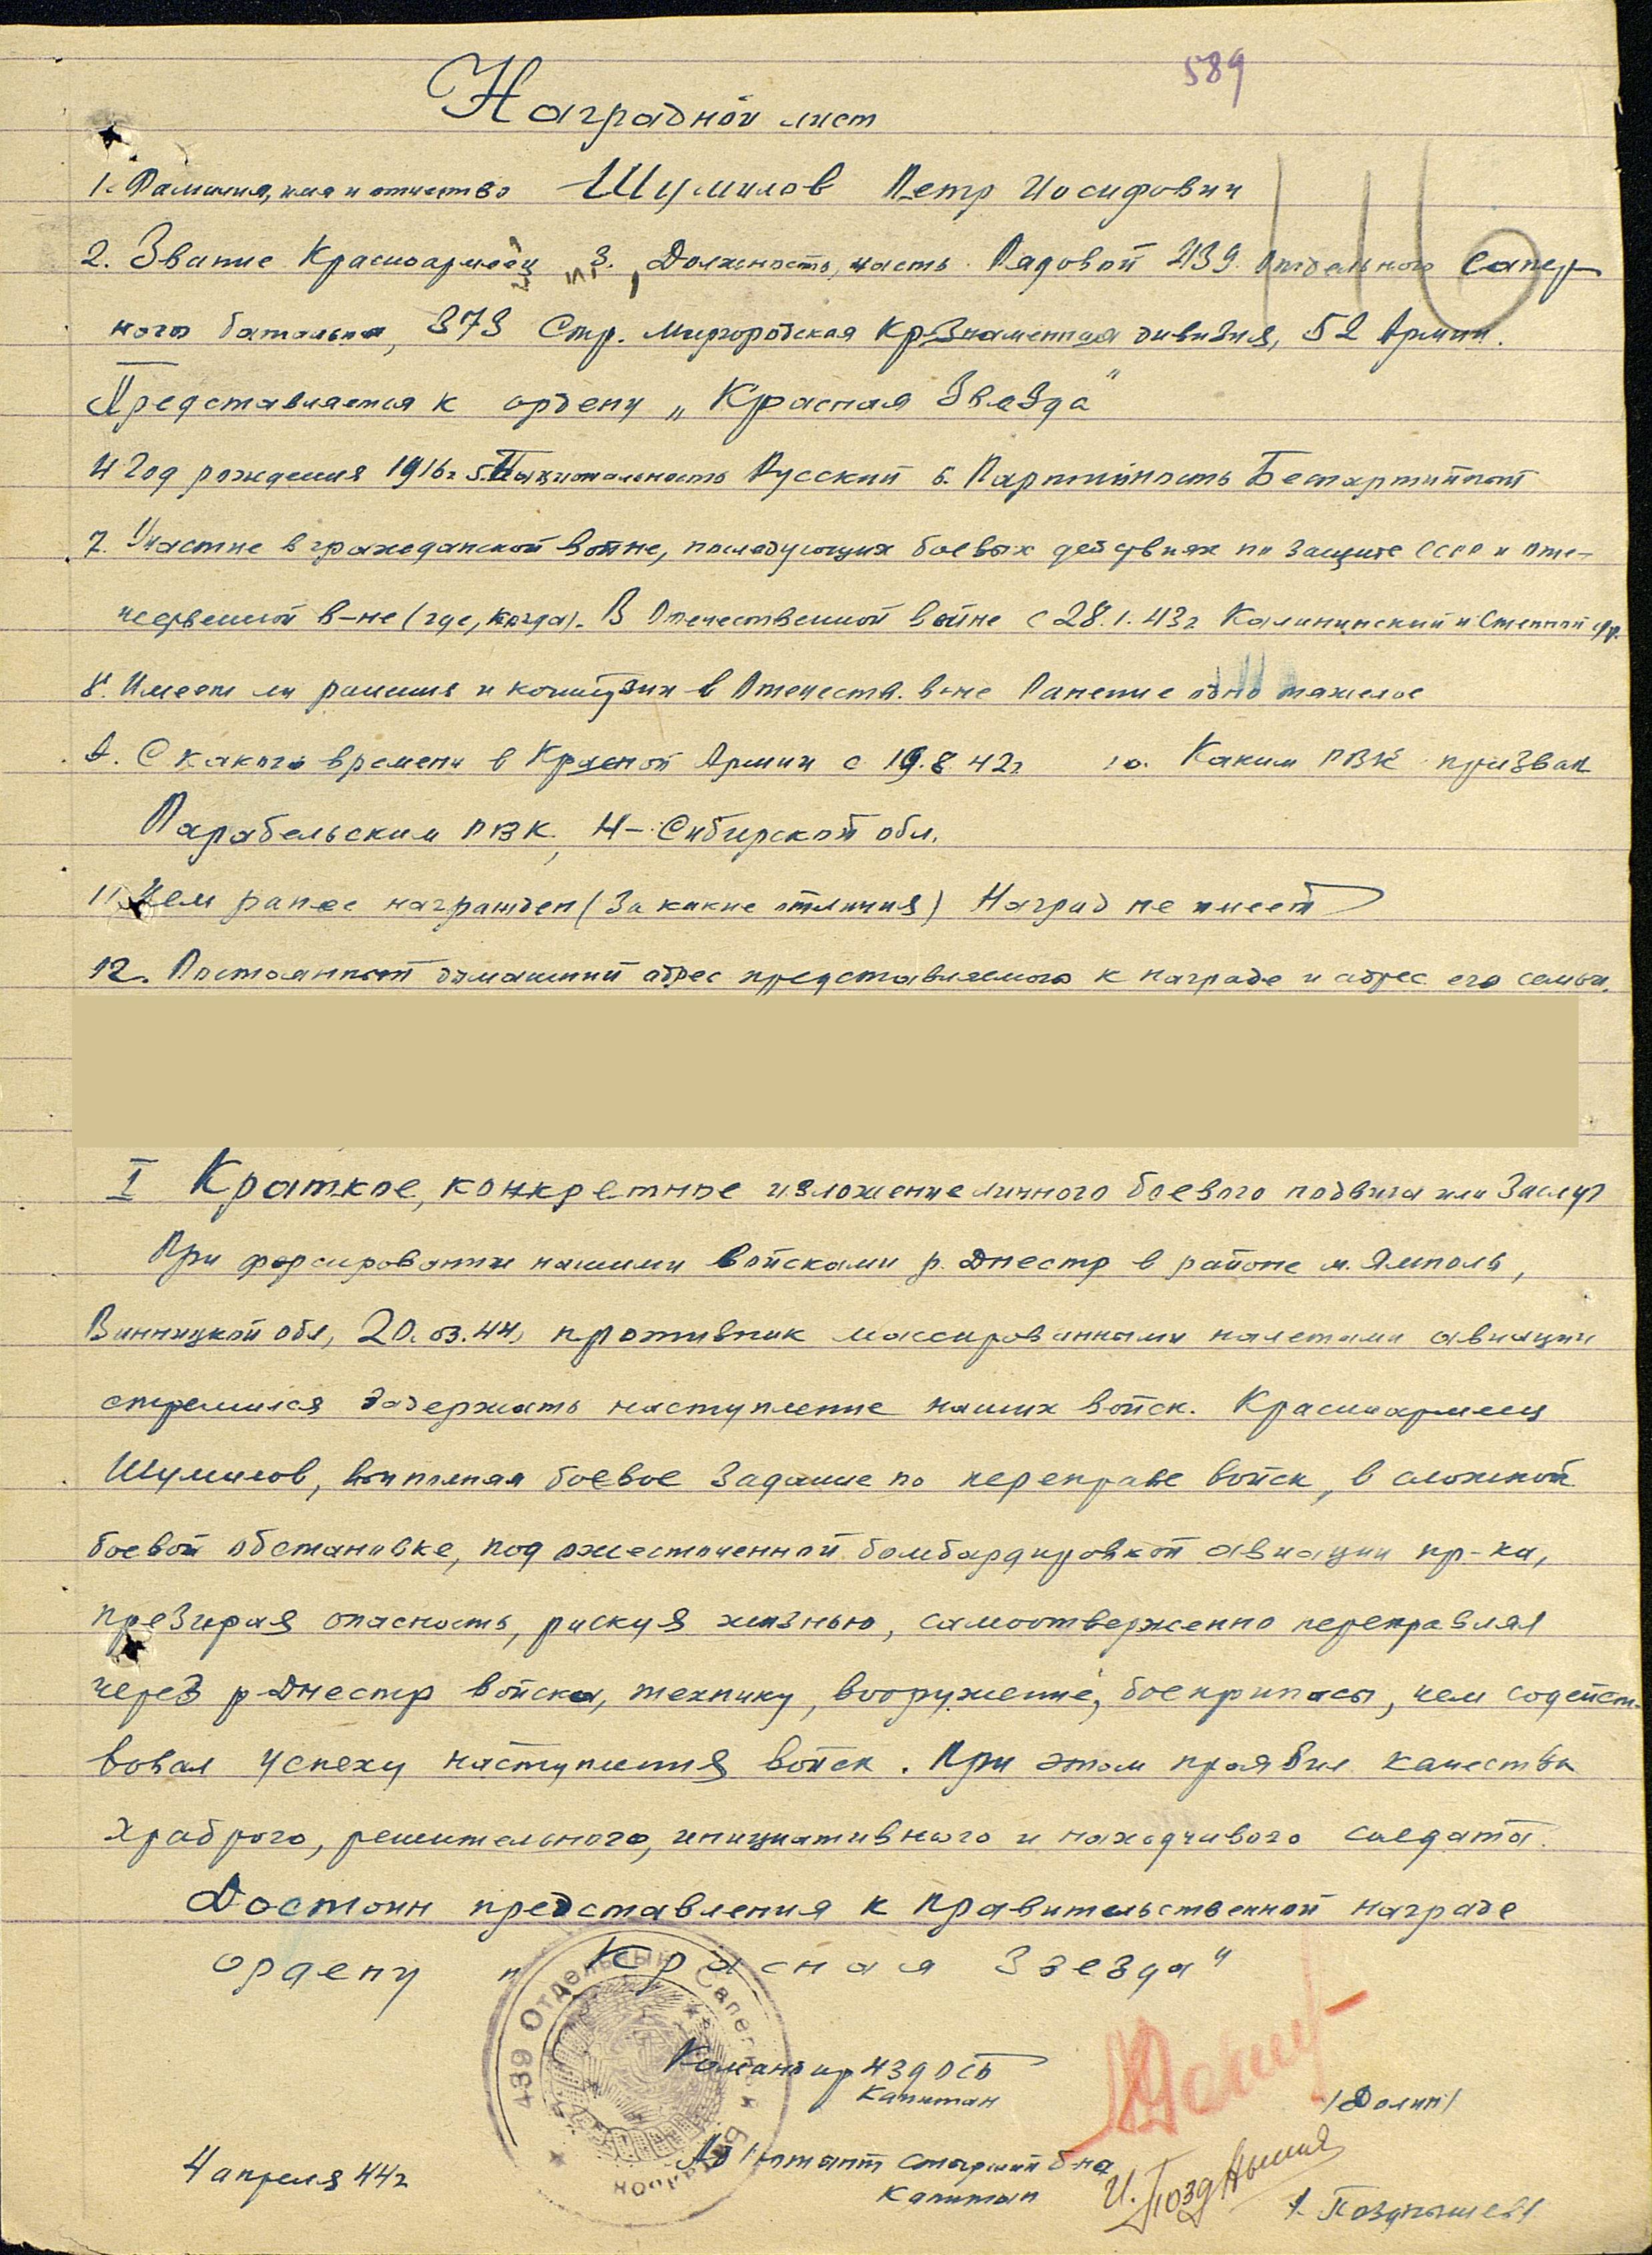 589
Наградной лист
1. Фамилия, имя и отчество Шумилов Петр Иосифович
2. Звание Красноармеец 3. Должность, часть Рядовой 439 Отдельного Сапер-
ного батальона, 373 Стр. Миргородская Кр.Знаменная дивизия, 52 Армии.
Представляется к ордену „Красная Звезда"
4 Год рождения 1916г 5. Национальность Русский 6. Партийность Беспартийный
7. Участие в гражданской войне, последующих боевых действиях по защите СССР и Оте-
чественной в-не (где, когда). В Отечественной войне с 28.1.43г Калининский и Степной фр.
8. Имеет ли ранения и контузии в Отечеств. в-не Ранение одно тяжелое
9. С какого времени в Красной Армии с 19.8.42г 10. Каким РВК призван
Парабельским РВК, Н-Сибирской обл.
11. Чем ранее награжден (за какие отличия) Наград не имеет
12. Постоянный домашний адрес представляемого к награде и адрес его семьи.
I Краткое, конкретное изложение личного боевого подвига или заслуг
При форсировании нашими войсками р. Днестр в районе м. Ямполь,
Винницкой обл, 20.03.44, противник массированными налетами авиации
стремился задержать наступление наших войск. Красноармеец
Шумилов, выполняя боевое задание по переправе войск, в сложной
боевой обстановке, под ожесточенной бомбардировкой авиации пр-ка,
презирая опасность, рискуя жизнью, самоотверженно переправлял
через р Днестр войска, технику, вооружение, боеприпасы, чем содейст-
вовал успеху наступления войск. При этом проявил качества
храброго, решительного, инициативного и находчивого солдата.
Достоин представления к правительственной награде
ордену „Красная Звезда"
439 Отдельный Саперный Батальон
Командир 439 ОСБ
Капитан
/Долин/
Адъютант старший б-на
Капитан
И. Позднышев
/. Позднышев/
4 апреля 44г